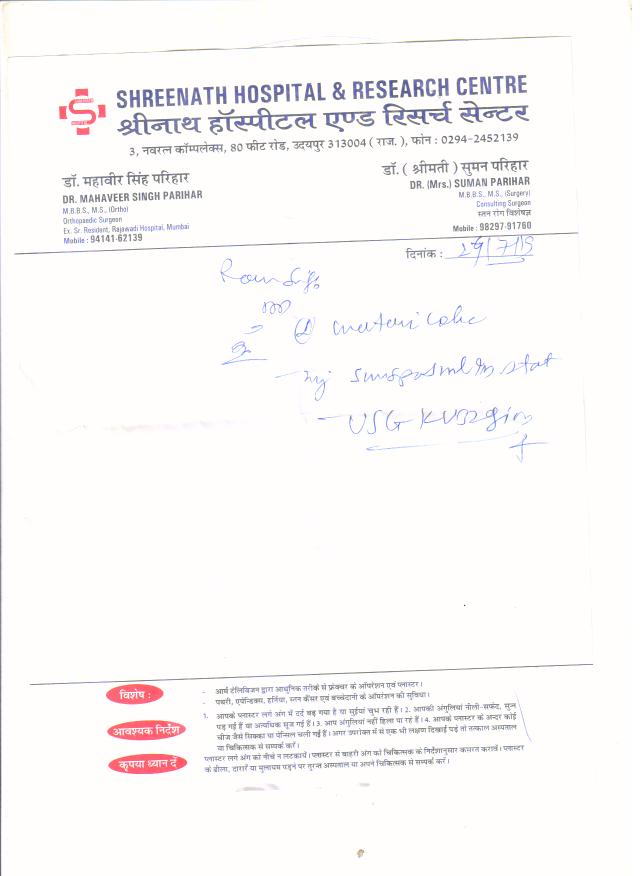 SHREENATH HOSPITAL & RESEARCH CENTRE
श्रीनाथ हॉस्पीटल एण्ड रिसर्च सेन्टर
3, नवरत्न कॉम्पलेक्स, 80 फीट रोड, उदयपुर 313004 ( राज. ), फोन : 0294-2452139
डॉ. महावीर सिंह परिहार
DR. MAHAVEER SINGH PARIHAR
M.B.B.S., M.S., (Ortho)
Orthopaedic Surgeon
Ex. Sr. Resident, Rajawadi Hospital, Mumbai
Mobile : 94141-62139
डॉ. ( श्रीमती ) सुमन परिहार
DR. (Mrs.) SUMAN PARIHAR
M.B.B.S., M.S., (Surgery)
Consulting Surgeon
स्तन रोग विशेषज्ञ
Mobile : 98297-91760
दिनांक :
inj stat
USG KUB
विशेष :
- आर्म टेलिविजन द्वारा आधुनिक तरीके से फ्रेक्चर के ऑपरेशन एवं प्लास्टर।
- पथरी, एपेन्डिक्स, हर्निया, स्तन कैंसर एवं बच्चेदानी के ऑपरेशन की सुविधा।
आवश्यक निर्देश
1. आपके प्लास्टर लगे अंग में दर्द बढ़ गया है या सुईयां चुभ रही हैं। 2. आपकी अंगुलियां नीली-सफेद, सुन्न
पड़ गई हैं या अत्यधिक सूज गई हैं। 3. आप अंगुलियां नहीं हिला पा रहे हैं। 4. आपके प्लास्टर के अन्दर कोई
चीज जैसे सिक्का या पेन्सिल चली गई हैं। अगर उपरोक्त में से एक भी लक्षण दिखाई पड़े तो तत्काल अस्पताल
या चिकित्सक से सम्पर्क करें।
कृपया ध्यान दें
प्लास्टर लगे अंग को नीचे न लटकायें। प्लास्टर से बाहरी अंग को चिकित्सक के निर्देशानुसार कसरत करावें। प्लास्टर
के ढीला, दरारें या मुलायम पड़ने पर तुरन्त अस्पताल या अपने चिकित्सक से सम्पर्क करें।